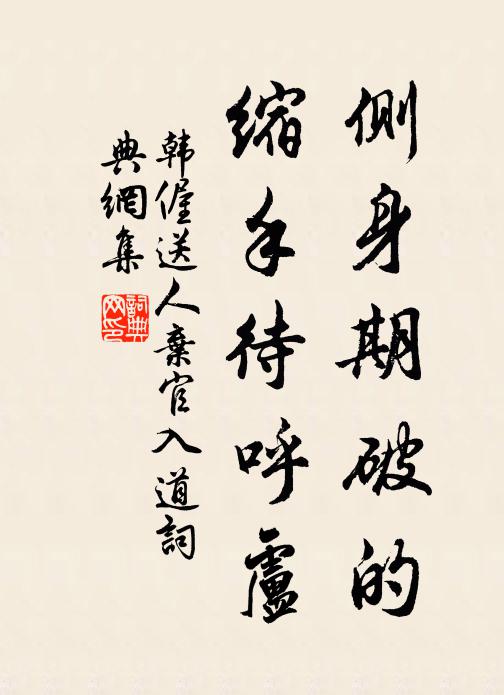 側身期破的
縮手待呼盧
韓偓送人棄官入道詞
典網集
詞典網印